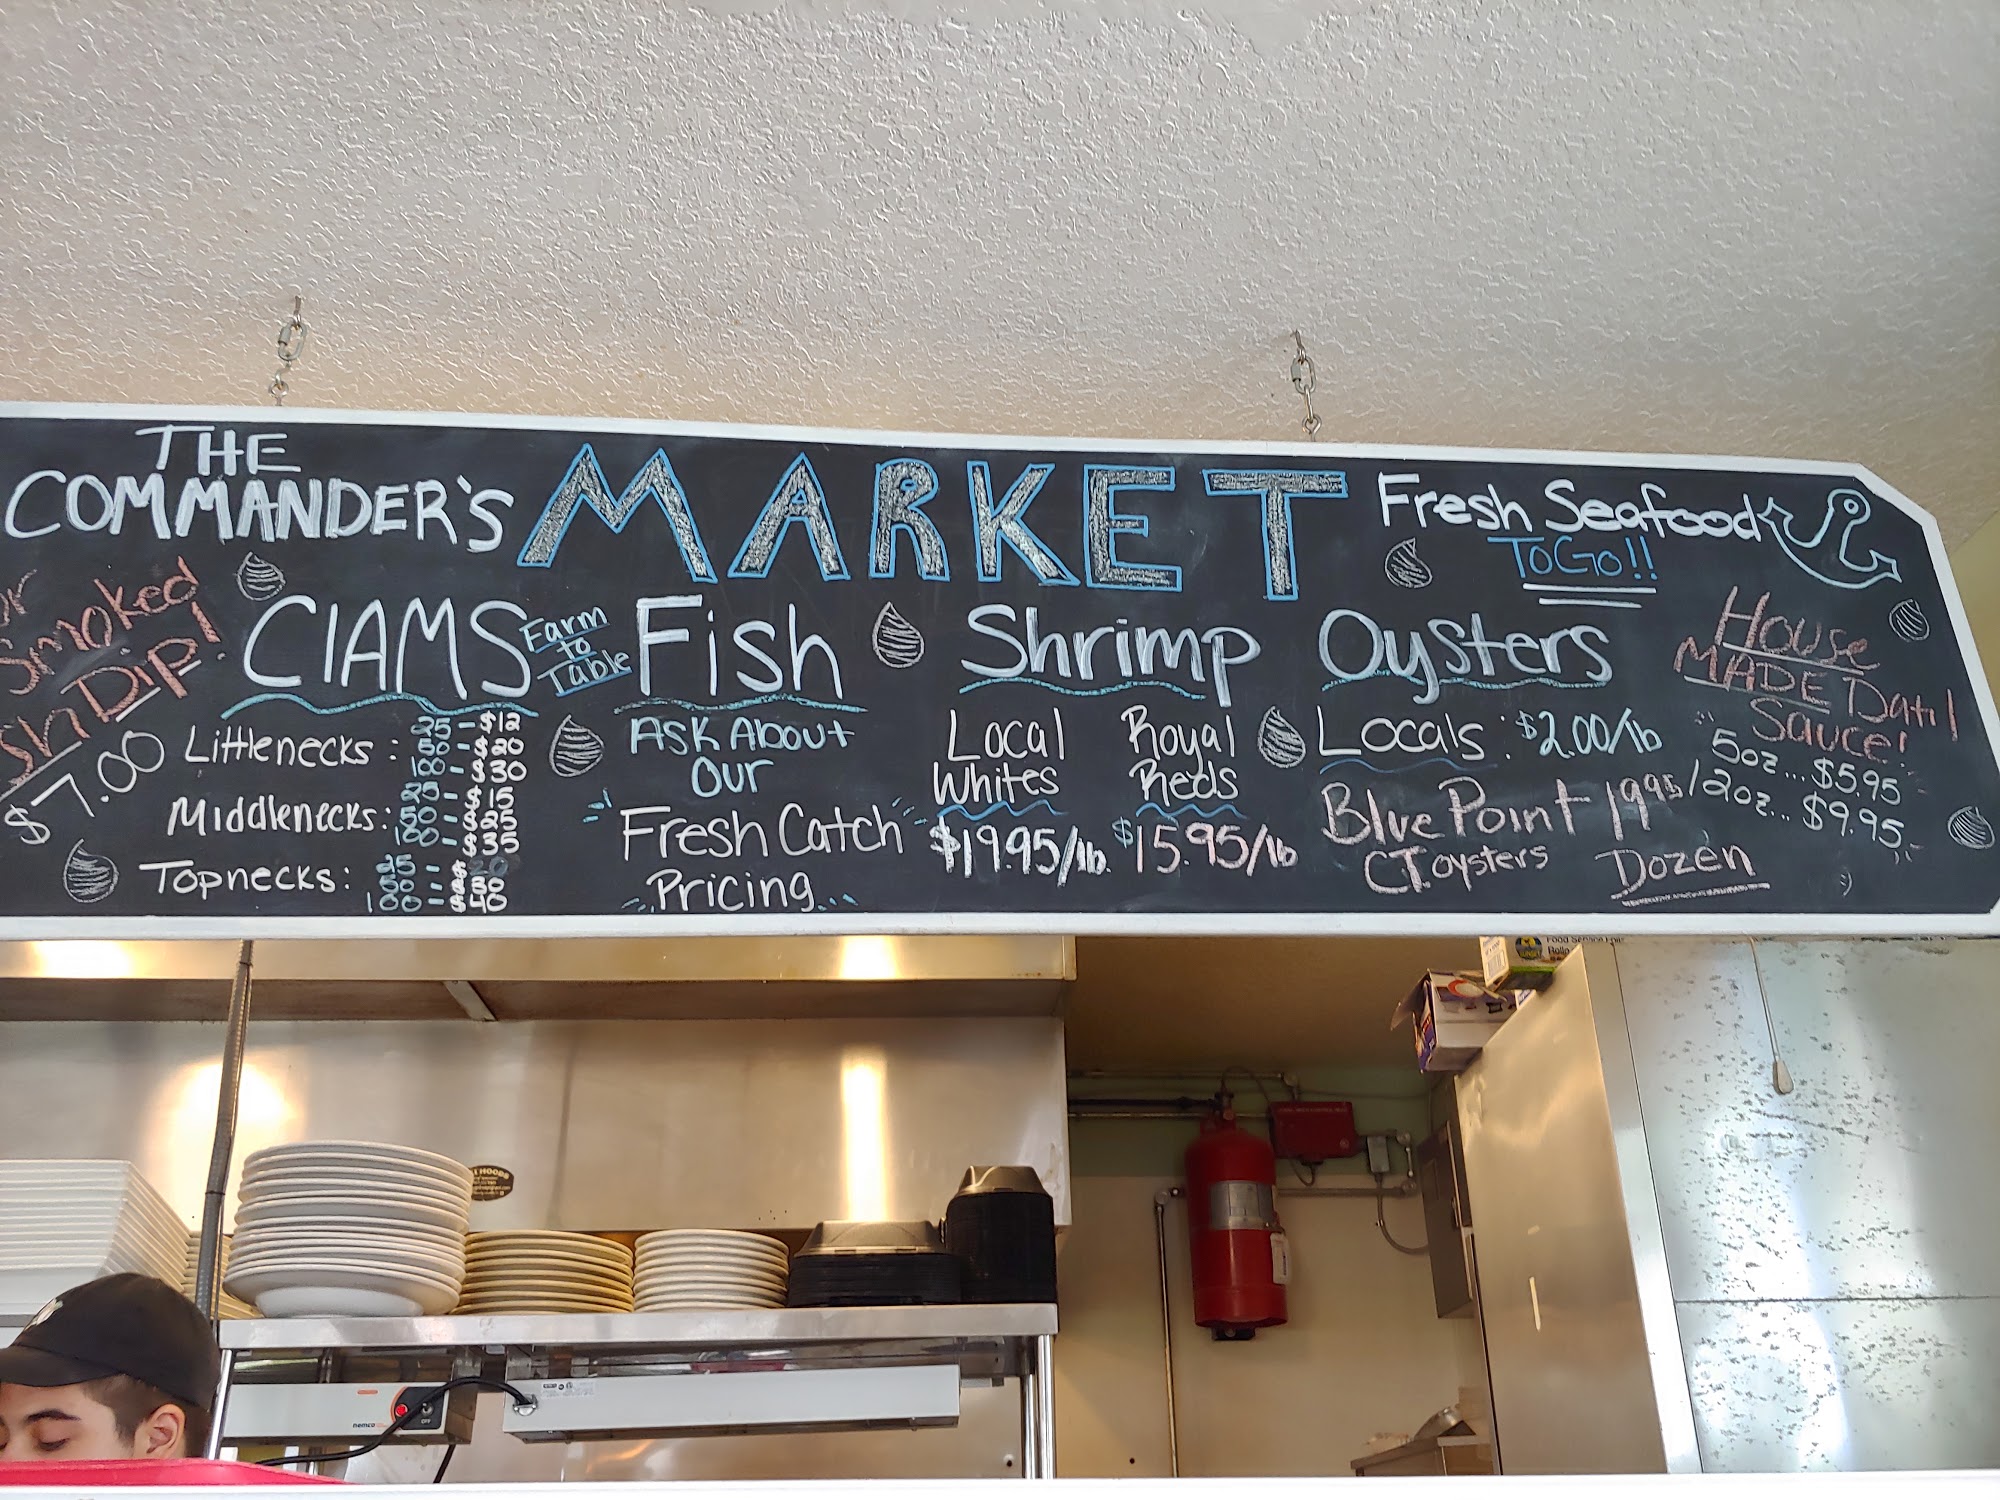 THE
COMMANDER'S MARKET
Fresh Seafood
TO GO!!
Smoked
Dip!
$7.00
ClAMS
Farm
to
Table
Littlenecks: 25 - $12
50 - $20
100 - $30
Middlenecks: 25 - $15
50 - $25
100 - $35
Topnecks: 25 - $20
50 - $30
100 - $40
Fish
ASK About
our
"Fresh Catch"
Pricing
Shrimp
Local
Whites
$19.95/lb.
Royal
Reds
$15.95/lb
Oysters
Locals: $2.00/lb
Blue Point 19.95
CT oysters Dozen
House
MADE Datil
Sauce!
5oz... $5.95
12oz... $9.95
:)
nemco
OFF
HOODS